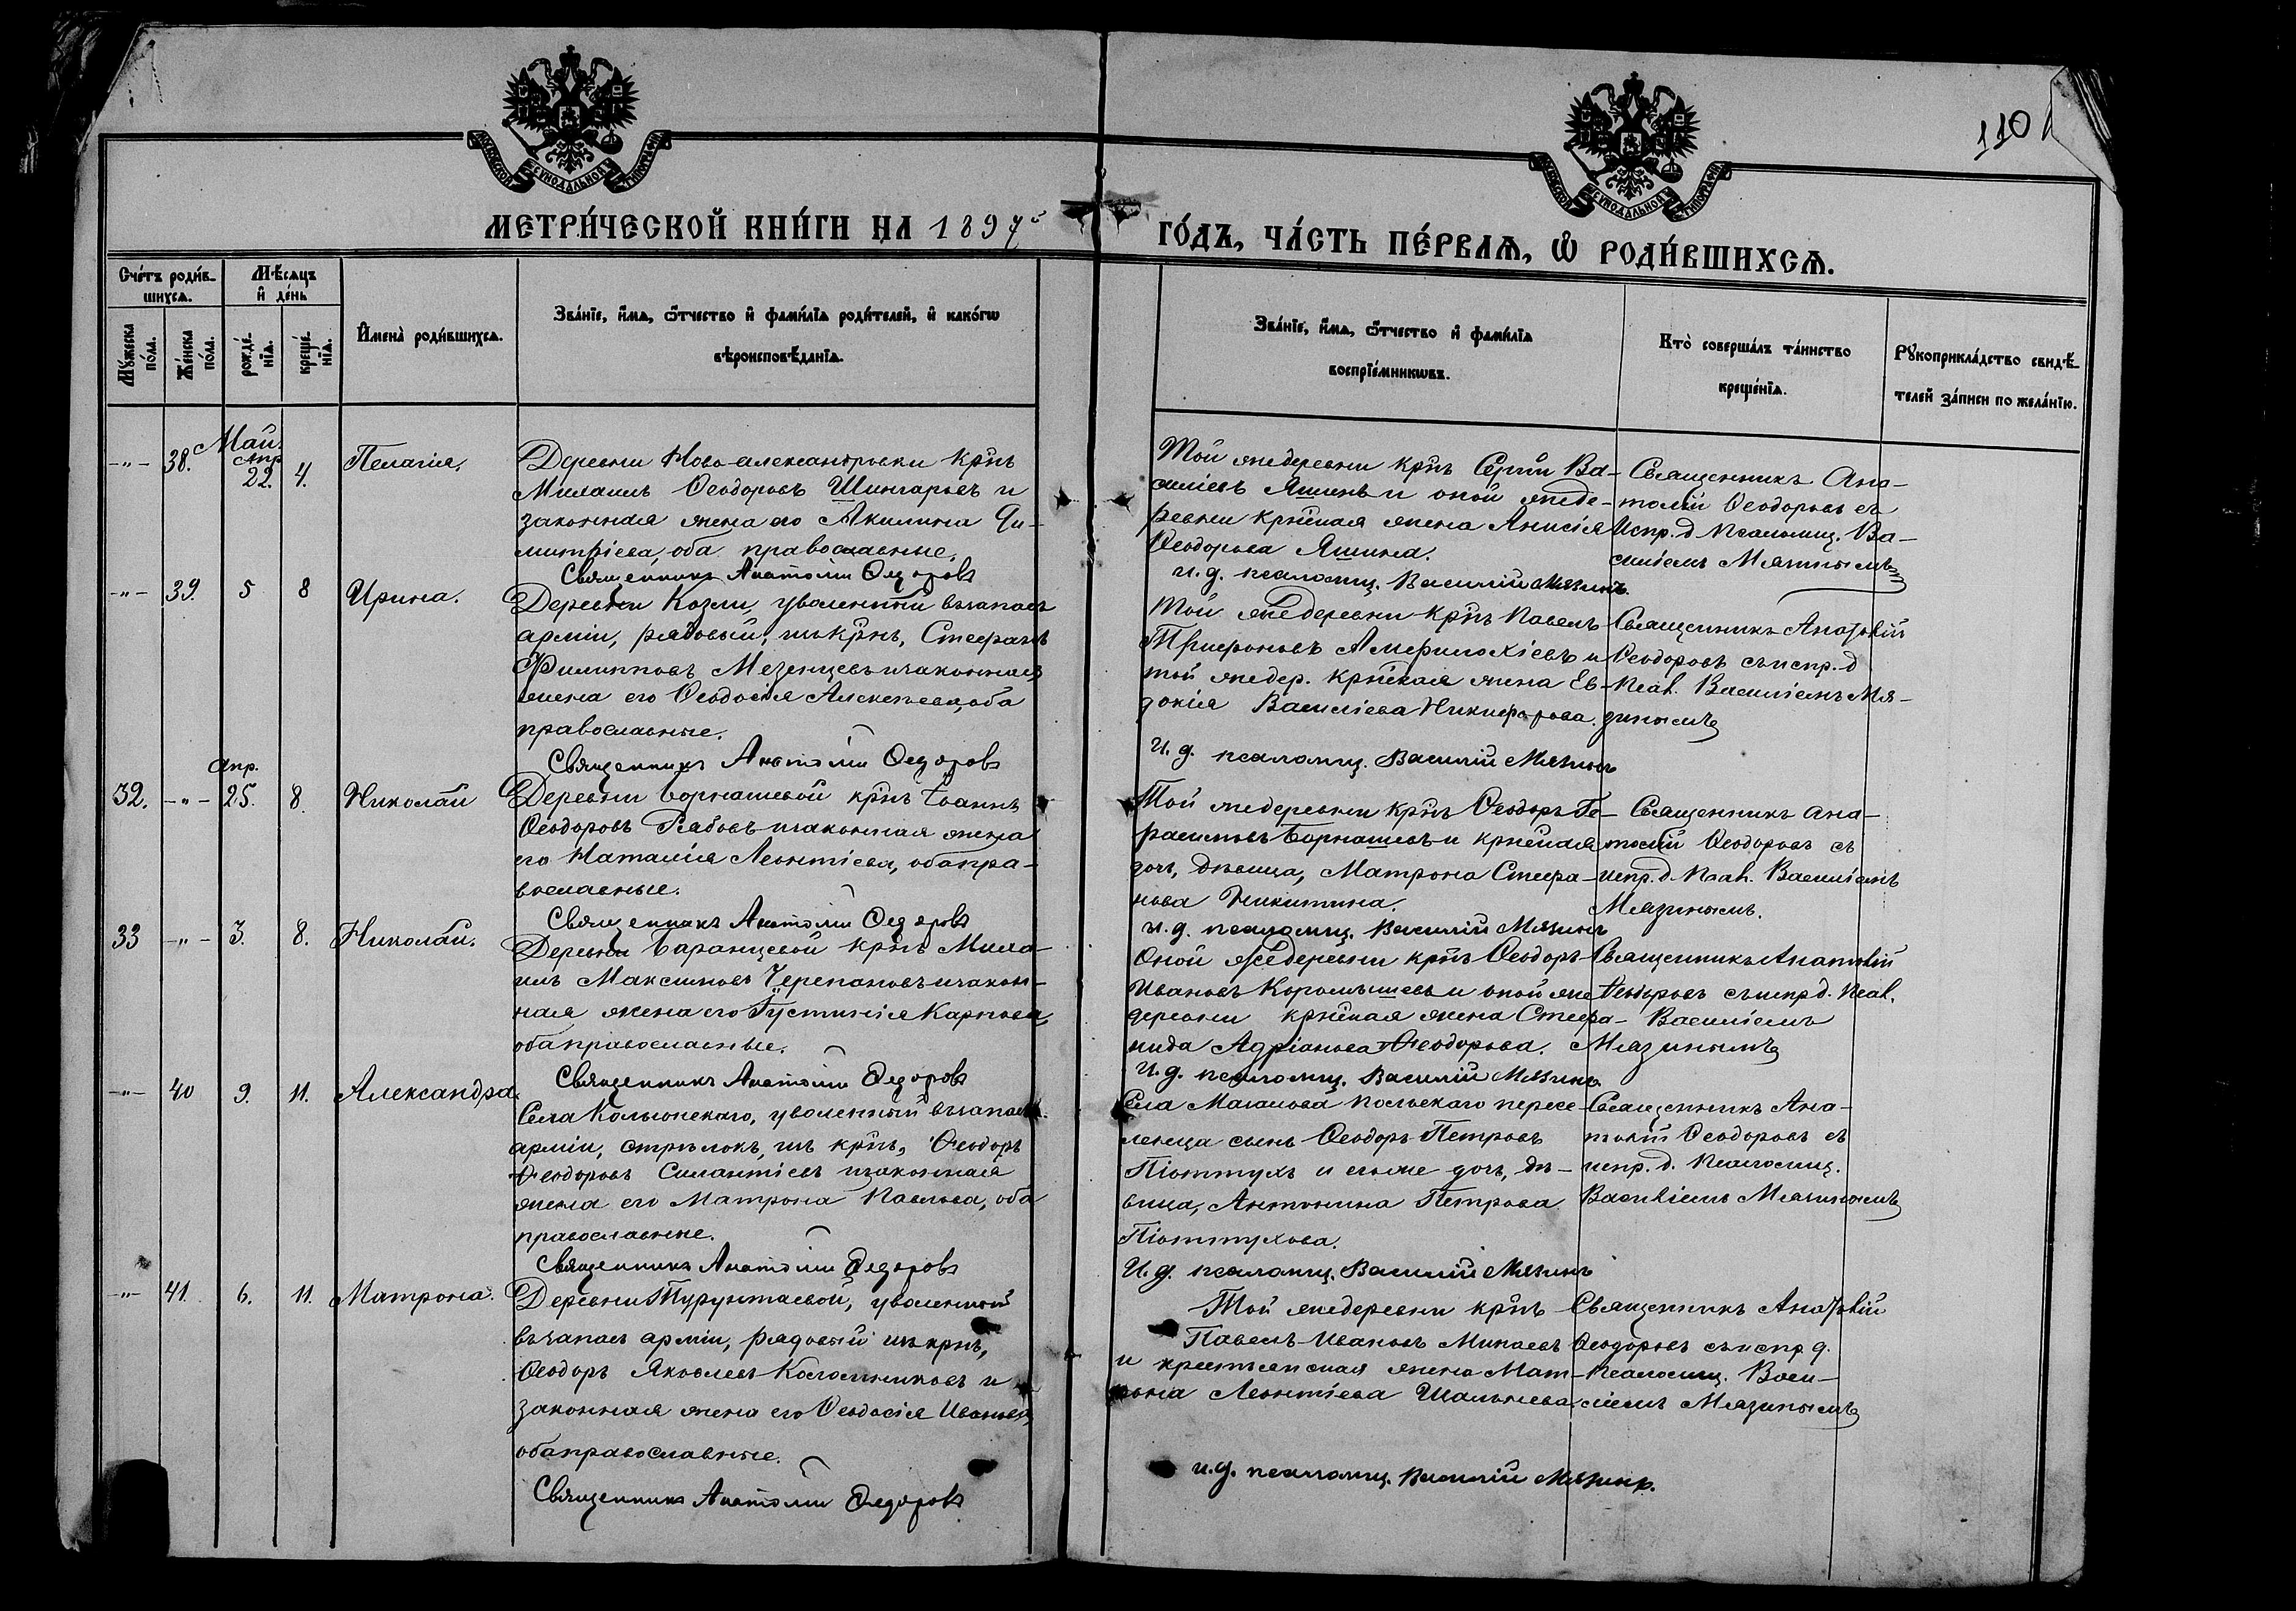 110
МОСКОВСКОЙ СѴНОДАЛЬНОЙ ТИПОГРАФІИ
МОСКОВСКОЙ СѴНОДАЛЬНОЙ ТИПОГРАФІИ
МЕТРИ́ЧЕСКОЙ КНИ́ГИ НА 1897й
ГО́ДЪ, ЧА́СТЬ ПЕ́РВАѦ, Ѡ҆ РОДИ́ВШИХСѦ.
Сче́тъ роди́в-
шихсѧ.
Мѣ́сѧцъ
и҆ де́нь
Мꙋ́жеска
по́ла.
Же́нска
по́ла.
рожде́-
нїѧ.
креще́-
нїѧ.
И҆мена̀ роди́вшихсѧ.
Зва́нїе, и҆́мѧ, ѻ҆́тчество и҆ фами́лїѧ роди́телей, и҆ како́гѡ
вѣроисповѣ́данїѧ.
Зва́нїе, и҆́мѧ, ѻ҆́тчество и҆ фами́лїѧ
воспрїе́мникѡвъ.
Кто̀ соверша́лъ та́инство
креще́нїѧ.
Рꙋкоприкла́дство свидѣ́-
телей за́писи по жела́нїю.
-"- 38. Май.
апр
22. 4. Пелагія.
Деревни Ново-александровки крнъ
Михаилъ Ѳеодоровъ Шингарьевъ и
законная жена его Акилина Ди-
митріева, оба православные.
Священникъ Анатолій Ѳедоровъ
Той жедеревни крнъ Сергій Ва-
силіевъ Яшинъ и оной жеде-
ревни крнская жена Анисія
Ѳеодорова Яшина.
и. д. псаломщ. Василій Мязинъ
Священникъ Ана-
толій Ѳеодоровъ съ
Испр. д. псаломщ. Ва-
силіемъ Мязинымъ
-"- 39. 5 8 Ирина.
Деревни Козли, уволенный възапасъ
арміи, рядовый, изъ крнъ, Стефанъ
Филипповъ Мезенцевъ изаконная
жена его Ѳеодосія Алексѣева, оба
православные.
Священникъ Анатолій Ѳедоровъ
Той жедеревни крнъ Павелъ
Трифоновъ Амфилохіевъ и
той жедер. крнская жена Ев-
докія Василіева Никифорова.
и. д. псаломщ. Василій Мязинъ
Священникъ Анатолій
Ѳеодоровъ съиспр. д
псал. Василіемъ Мя-
зинымъ
апр.
32. -"- 25. 8. Николай
Деревни Борнашевой крнъ Іоаннъ
Ѳеодоровъ Рябовъ изаконная жена
его Наталія Леонтіева, оба пра-
вославные.
Священникъ Анатолій Ѳедоровъ
Той жедеревни крнъ Ѳеодоръ Ге-
расимовъ Борнашевъ и крнская
доч, дѣвица, Матрона Стефа-
нова Никитина.
и. д. псаломщ. Василій Мязинъ
Священникъ Ана-
толій Ѳеодоровъ съ
испр. д. псал. Василіемъ
Мязинымъ.
33 -"- 3. 8. Николай.
Деревни Баранцевой крнъ Миха-
илъ Максимовъ Черепановъ изакон-
ная жена его Густинія Карпова,
оба православные.
Священникъ Анатолій Ѳедоровъ
Оной жедеревни крнъ Ѳеодоръ
Ивановъ Коромышевъ и оной же
деревни крнская жена Стефа-
нида Адріанова Ѳеодорова.
и. д. псаломщ. Василій Мязинъ
Священникъ Анатолій
Ѳеодоровъ съиспр д. псал.
Василіемъ
Мязинымъ
-"- 40 9. 11. Александра.
Села Кольонскаго, уволенный възапасъ
арміи, стрѣлокъ, изъ крнъ, Ѳеодоръ
Ѳеодоровъ Силантіевъ изаконная
жена его Матрона Павлова, оба
православные.
Священникъ Анатолій Ѳедоровъ
Села польскаго пересе-
ленца сынъ Ѳеодоръ Петровъ
Піоттухъ и егоже доч, дѣ-
вица, Антонина Петрова
Піоттухова.
и. д. псаломщ. Василій Мязинъ
Священникъ Ана-
толій Ѳеодоровъ съ
испр. д. псаломщ.
Василіемъ Мязинымъ
-"- 41. 6. 11. Матрона.
Деревни Турунтаевой, уволенный
възапасъ арміи, рядовый изъ крнъ,
Ѳеодоръ Яковлевъ Колотниковъ и
законная жена его Ѳеодосія Иванова,
оба православные.
Священникъ Анатолій Ѳедоровъ
Той жедеревни крнъ
Павелъ Ивановъ Минаевъ
и крестьянская жена Мат-
рона Леонтіева
и. д. псаломщ. Василій Мязинъ.
Священникъ Анатолій
Ѳеодоровъ съиспр. д.
псаломщ. Васи-
ліемъ Мязинымъ